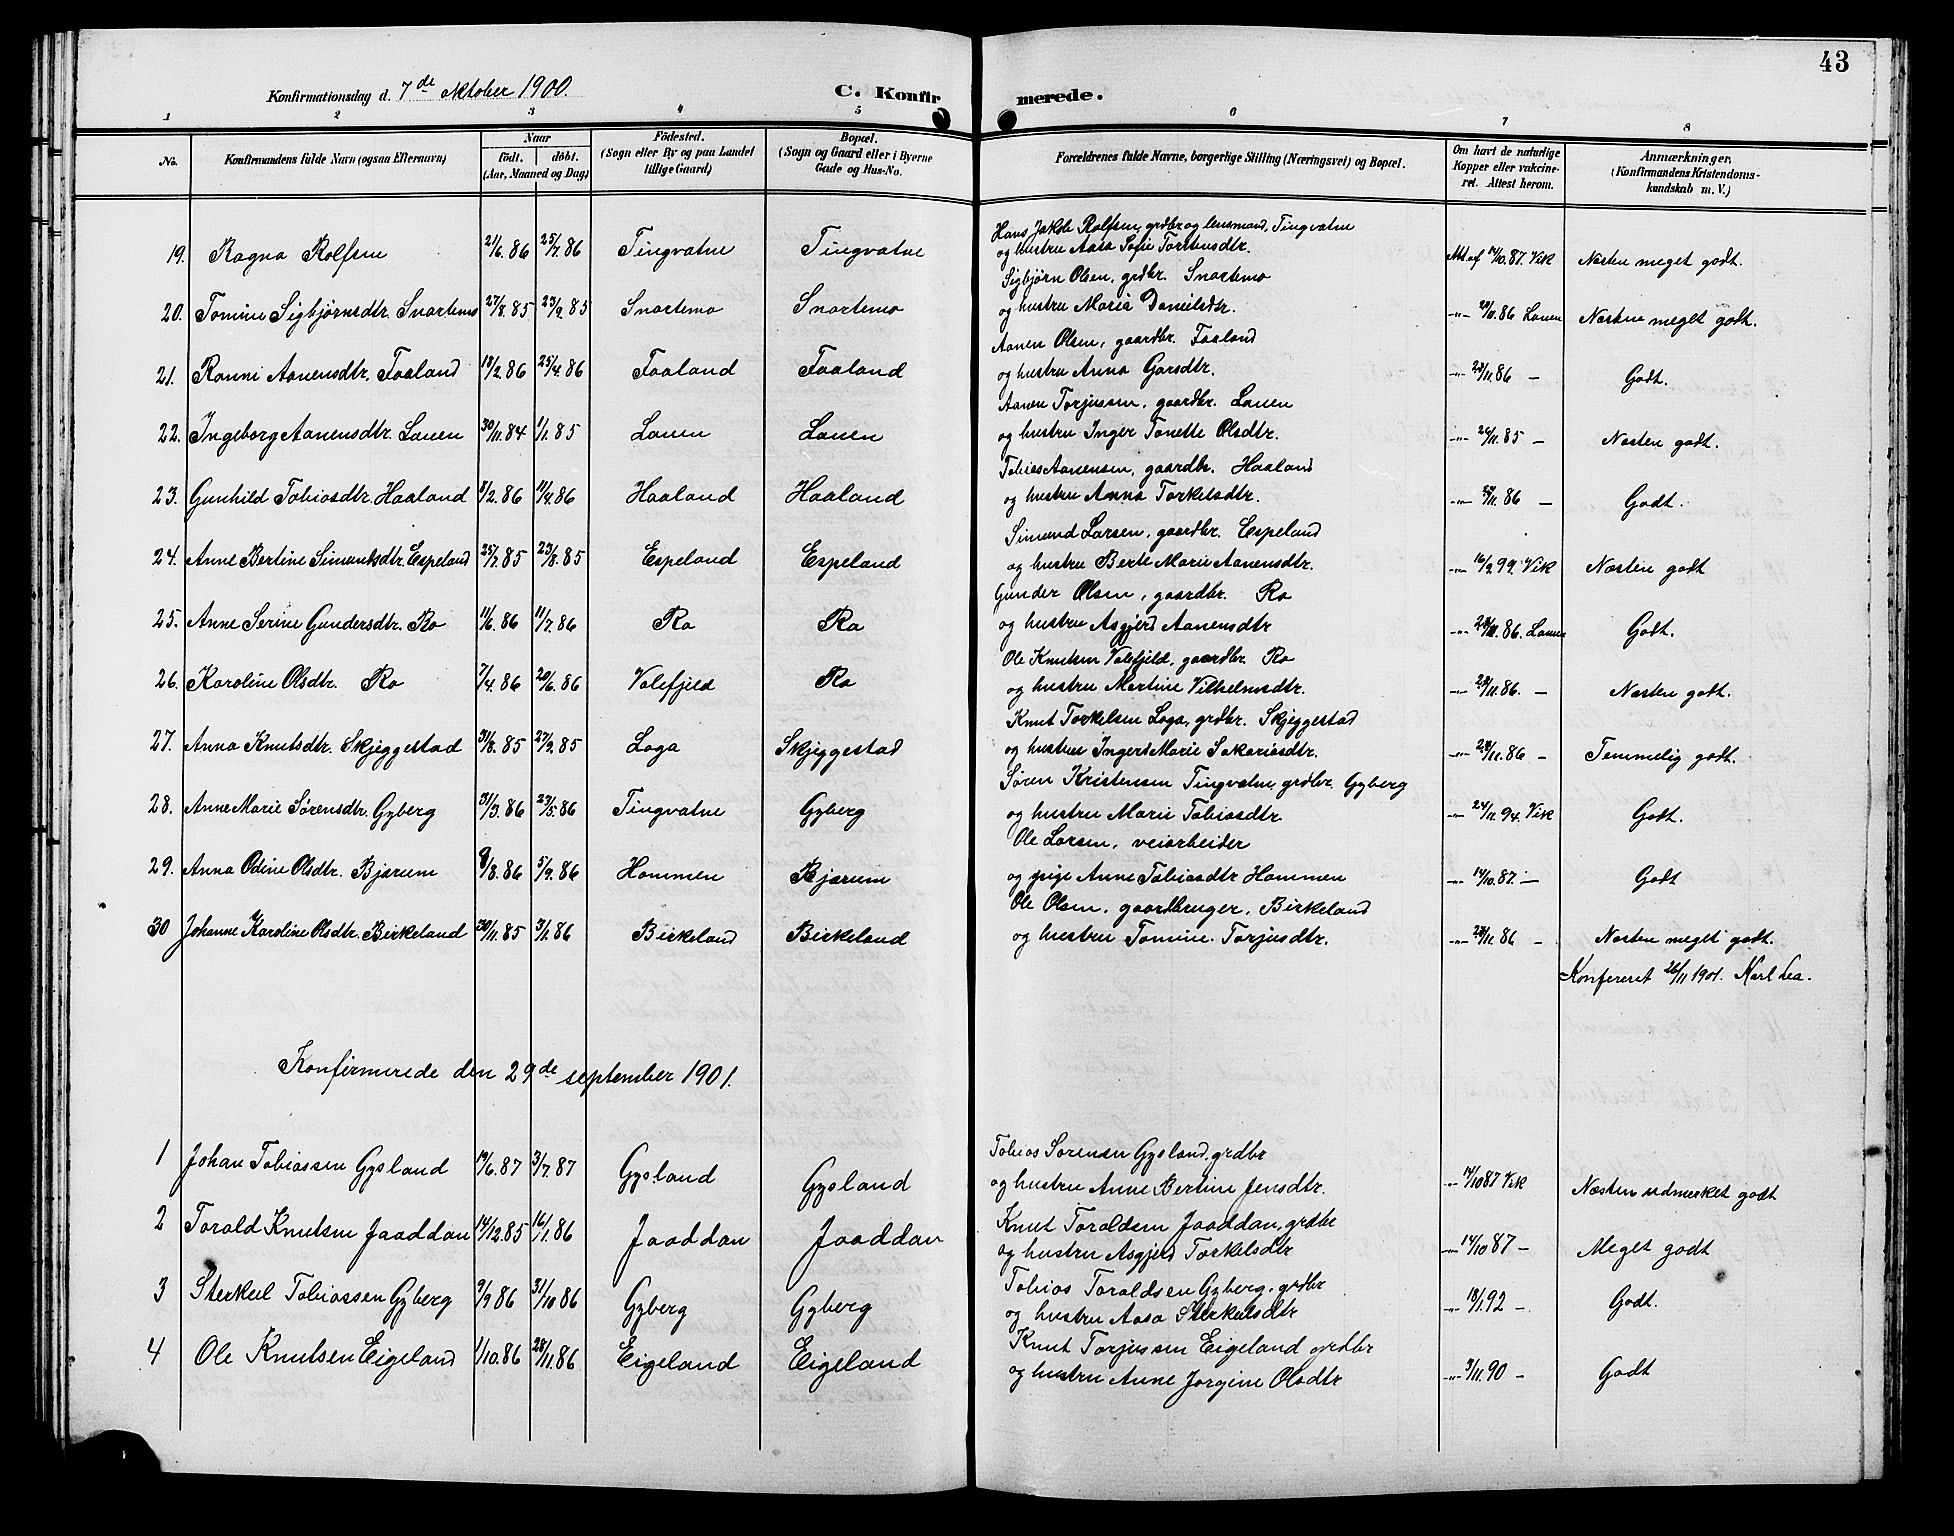 43
Konfirmationsdag d. 7de oktober 1900. C. Konfir merede.
1 2 3 4 5 6 7 8
No. Konfirmandens fulde Navn (ogsaa Efternavn) Naar født. døbt. (Aar, Maaned og Dag) Fødested. (Sogn eller By og paa Landet tillige Gaard) Bopæl. (Sogn og Gaard eller i Byerne Gade og Hus-No. Forældrenes fulde Navne, borgerlige Stilling (Næringsvei) og Bopæl. Om havt de naturlige Kopper eller vakcineret. Attest herom. Anmærkninger. (Konfirmandens Kristendomskundskab m. V.)
Hans Jakob Rolfsen, grdbr og lensmand, Tingvatne
19. Ragna Rolfsen 21/6.86 25/7.86 Tingvatne Tingvatne og hustru Aasa Sofie Torstensdtr. Att. af 14/10.87. Vik Næsten meget godt.
Sigbjørn Olsen, grdbr. Snartemo
20. Tomine Sigbjørnsdtr. Snartemo 27/8.85 23/9.85 Snartemo Snartemo og hustru Maria Danielsdtr. -"- 23/11.86 Lauen Næsten meget godt.
Aanen Olsen, gaardbr. Faaland
21. Ranni Aanensdtr. Faaland 18/2.86 25/4.86 Faaland Faaland og hustru Anna Garsdtr. -"- 23/11.86 - Godt.
Aanen Torjussen, gaardbr. Lauen
22. Ingeborg Aanensdtr. Lauen 30/11.84 1/1.85 Lauen Lauen og hustru Inger Tonette Olsdtr. -"- 26/11.85 - Næsten godt.
Tobias Aanensen, gaardbr. Haaland
23. Gunhild Tobiasdtr. Haaland 8/2.86 11/4.86 Haaland Haaland og hustru Anna Torkelsdtr. -"- 23/11.86 - Godt.
Simund Larsen, gaardbr. Espeland
24. Anne Bertine Simundsdtr. Espeland 25/7.85 23/8.85 Espeland Espeland og hustru Berte Marie Aanensdtr. -"- 16/2.99. Vik Næsten godt
Gunder Olsen, gaardbr. Ro
25. Anne Serine Gundersdtr. Ro 11/6.86 11/7.86 Ro Ro og hustru Asgjerd Aanensdtr -"- 23/11.86. Lauen Godt.
Ole Knutsen Valefjeld, gaardbr. Ro
26. Karoline Olsdtr. Ro 7/4.86 20/6.86 Valefjeld Ro og hustru Martine Vilhelmsdtr. -"- 23/11.86. - Næsten godt.
Knut Torkelsen Loga, grdbr. Skjeggestad
27. Anna Knutsdtr. Skjeggestad 31/8.85 27/9.85 Loga Skjeggestad og hustru Ingerd Marie Sakariasdtr. -"- 23/11.86 - Temmelig godt.
Søren Kristensen Tingvatne, grdbr. Gyberg
28. Anne Marie Sørensdtr. Gyberg 31/3.86 23/5.86 Tingvatne Gyberg og hustru Marie Tobiasdtr -"- 24/11.94. Vik Godt.
Ole Larsen, veiarbeider
29. Anna Odine Olsdtr. Bjærum 9/8.86 5/9.86 Hommen Bjærum og pige Anne Tobiasdtr Hommen -"- 14/10.87. - Godt
Ole Olsen, gaardbruger, Birkeland
30 Johanne Karoline Olsdtr. Birkeland 30/11.85 3/1.86 Birkeland Birkeland og hustru Tomine Torjusdtr. -"- 23/11.86 - Næsten meget godt.
Konfereret 26/11 1901. Karl Lea.
Konfirmerede den 29de september 1901.
Tobias Sørensen Gysland, grdbr
1 Johan Tobiassen Gysland 19/6.87 3/7.87 Gysland Gysland og hustru Anne Bertine Jensdtr. -"- 14/10 87 Vik Næsten udmerket godt
Knut Toraldsen Jaaddan, grdbr
2 Torald Knutsen Jaaddan 14/12.85 16/1.86 Jaaddan Jaaddan og hustru Asgjerd Torkelsdtr -"- 14/10 87 - Meget godt
Tobias Toraldsen Gyberg, grdbr
3 Sterkel Tobiassen Gyberg 9/9 86 31/10 86 Gyberg Gyberg og hustru Aasa Sterkelsdtr -"- 18/1.92 - Godt.
Knut Torjussen Eigeland grdbr
4 Ole Knutsen Eigeland 1/10.86 28/11.86 Eigeland Eigeland og hustru Anne Jorgine Olsdtr -"- 3/11.90 - Godt